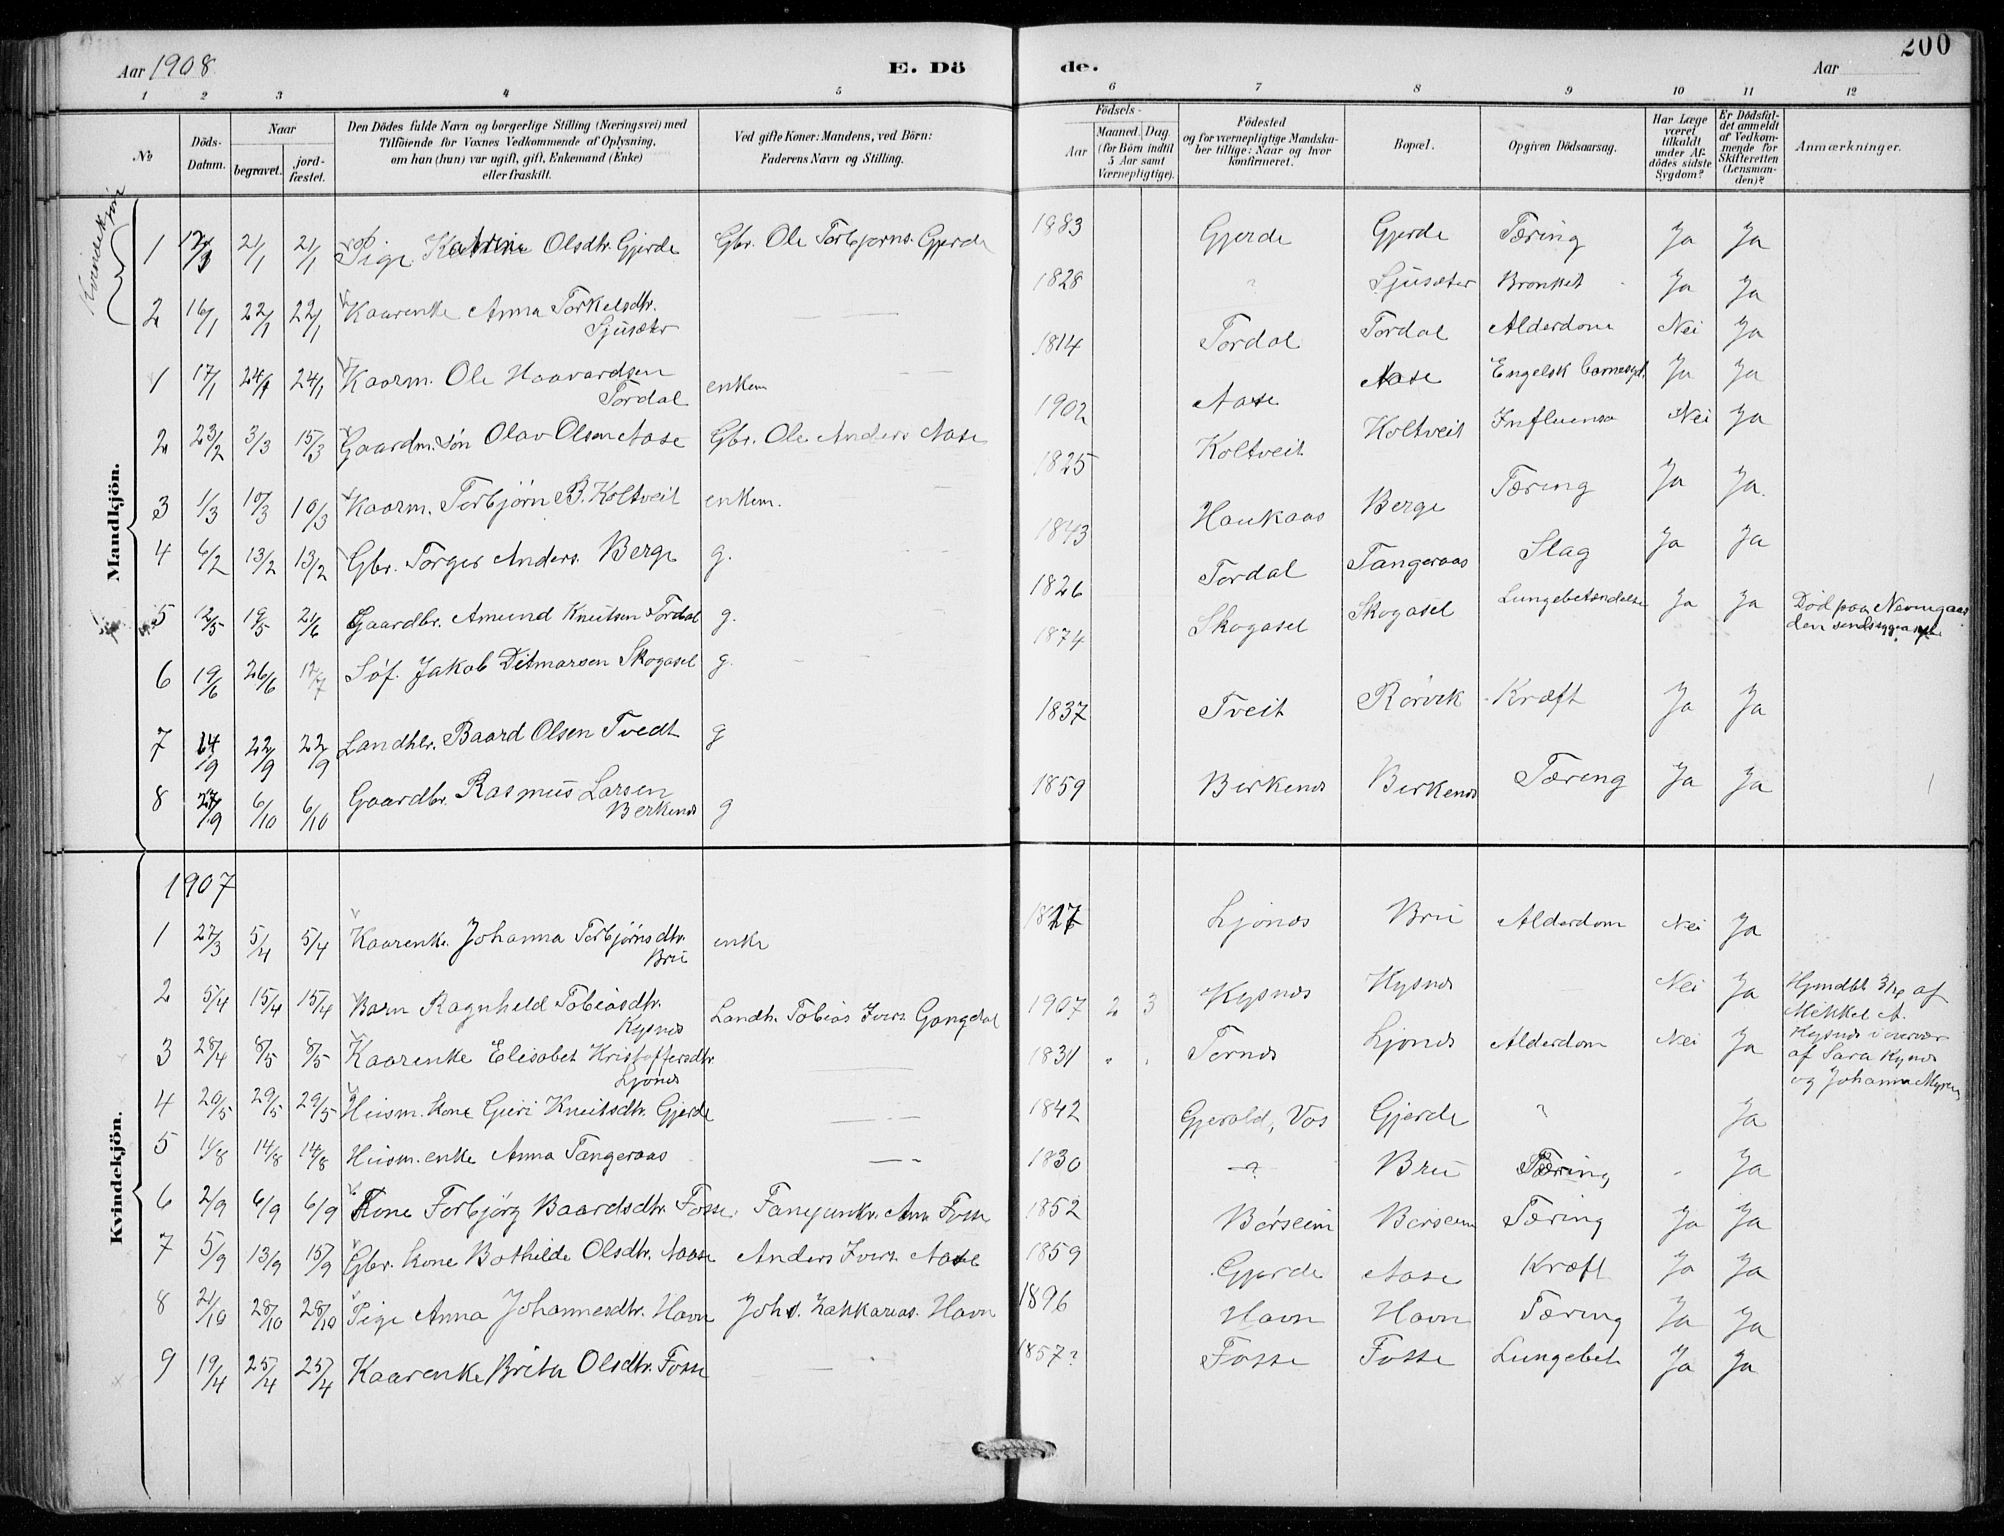 200
Aar 1908 E. Dö de. Aar
1 2 3 4 5 6 7 8 9 10 11 12
№
Döds-Datum.
Naar
begravet.
jord-fæstet.
Den Dödes fulde Navn og borgerlige Stilling (Næringsvei) med
Tilföiende for Voxnes Vedkommende af Oplysning,
om han (hun) var ugift, gift, Enkemand (Enke)
eller fraskilt.
Ved gifte Koner: Mandens, ved Börn:
Faderens Navn og Stilling.
Födsels-
Aar
Maaned. Dag.
(for Börn indtil
5 Aar samt
Værnepligtige).
Födested
og for værnepligtige Mandska-
ber tillige: Naar og hvor
konfirmeret.
Bopæl.
Opgiven Dödsaarsag.
Har Læge
været
tilkaldt
under Af-
dödes sidste
Sygdom?
Er Dödsfal-
det anmeldt
af Vedkom-
mende for
Skifteretten
(Lensman-
den)?
Anmærkninger.
Kvindekjøn
Mandkjön.
1 21/1 21/1 Pige Katrine Olsdtr. Gjerde Gbr. Ole Torbjørns. Gjerde 1883 Gjerde Gjerde Tæring Ja Ja
2 16/1 22/1 22/1 Kaarenke Anna Torkelsdtr. Sjusæter 1828 Sjusæter Bronket Ja Ja
1 17/1 24/1 24/1 Kaarm. Ole Haavardsen Tordal enkem 1814 Tordal Tordal Alderdom Nei Ja
2 23/2 3/3 15/3 Gaardm. søn Olav Olsen Aase Gbr. Ole Anders. Aase 1902 Aase Aase Engelsk Ja Ja
3 1/3 10/3 10/3 Kaarm. Torbjørn B. Koltveit enkem. 1825 Koltveit Koltveit Influensa Nei Ja
4 6/2 13/2 13/2 Gbr. Torger Anders. Berge g. 1843 Haukaas Berge Tæring Ja Ja.
5 12/5 19/5 21/6 Gaardbr. Amund Knutsen Tordal g. 1826 Tordal Tangeraas Slag Ja Ja
6 19/6 26/6 17/7 Søf. Jakob Ditmarsen Skogasel g. 1874 Skogasel Skogasel Lungebetændelse Ja Ja Død paa
7 14/9 22/9 22/9 Landhr. Baard Olsen Tvedt g 1837 Tveit Rørvik Kræft Ja Ja
8 27/9 6/10 6/10 Gaardbr. Rasmus Larsen Berkenes g 1859 Birkenes Birkenes Tæring Ja Ja
1907
Kvindekjön.
1 27/3 5/4 5/4 Kaarenke. Johanna Torbjørnsdtr. Bru enke 1827 Ljones Bru Alderdom Nei Ja
2 5/4 15/4 15/4 Barn Ragnhild Tobiasdtr. Kysnes Landh. Tobias Ivers. Gangdal 1907 2 3 Kysnes Kysnes Nei Ja Hjemdbt 3/4 af
Mikkel A.
Kysnes i overvær
af Sara Kysnes
og Johanna Myren
3 28/4 8/5 8/5 Kaarenke Elisabet Kristoffersdtr. Ljones 1831 " " Tornes Ljones Alderdom Nei Ja
4 20/5 29/5 29/5 Husm. Kone Guri Knutsdtr. Gjerde 1842 Gjerald, Vos Gjerde ? Ja
5 11/8 14/8 14/8 Husm. enke Anna Tangeraas 1830 ? Bru Tæring - Ja
6 2/9 6/9 6/9 Kone Torbjørg Baardsdtr. Fosse. 1852 Børseim Børseim Tæring Ja Ja
7 5/9 13/9 15/9 Gbr. Kone Bothilde Olsdtr. Aase Anders Ivers. Aase 1859 Gjerde Aase Kræft Ja Ja
8 21/10 28/10 28/10 Pige Anna Johannesdtr. Havn Johs. Zakkarias. Havn 1896 Havn Havn Tæring Ja Ja
9 19/4 25/4 25/4 Kaarenke Brita Olsdtr. Fosse 1857? Fosse Fosse Lungebet Ja Ja